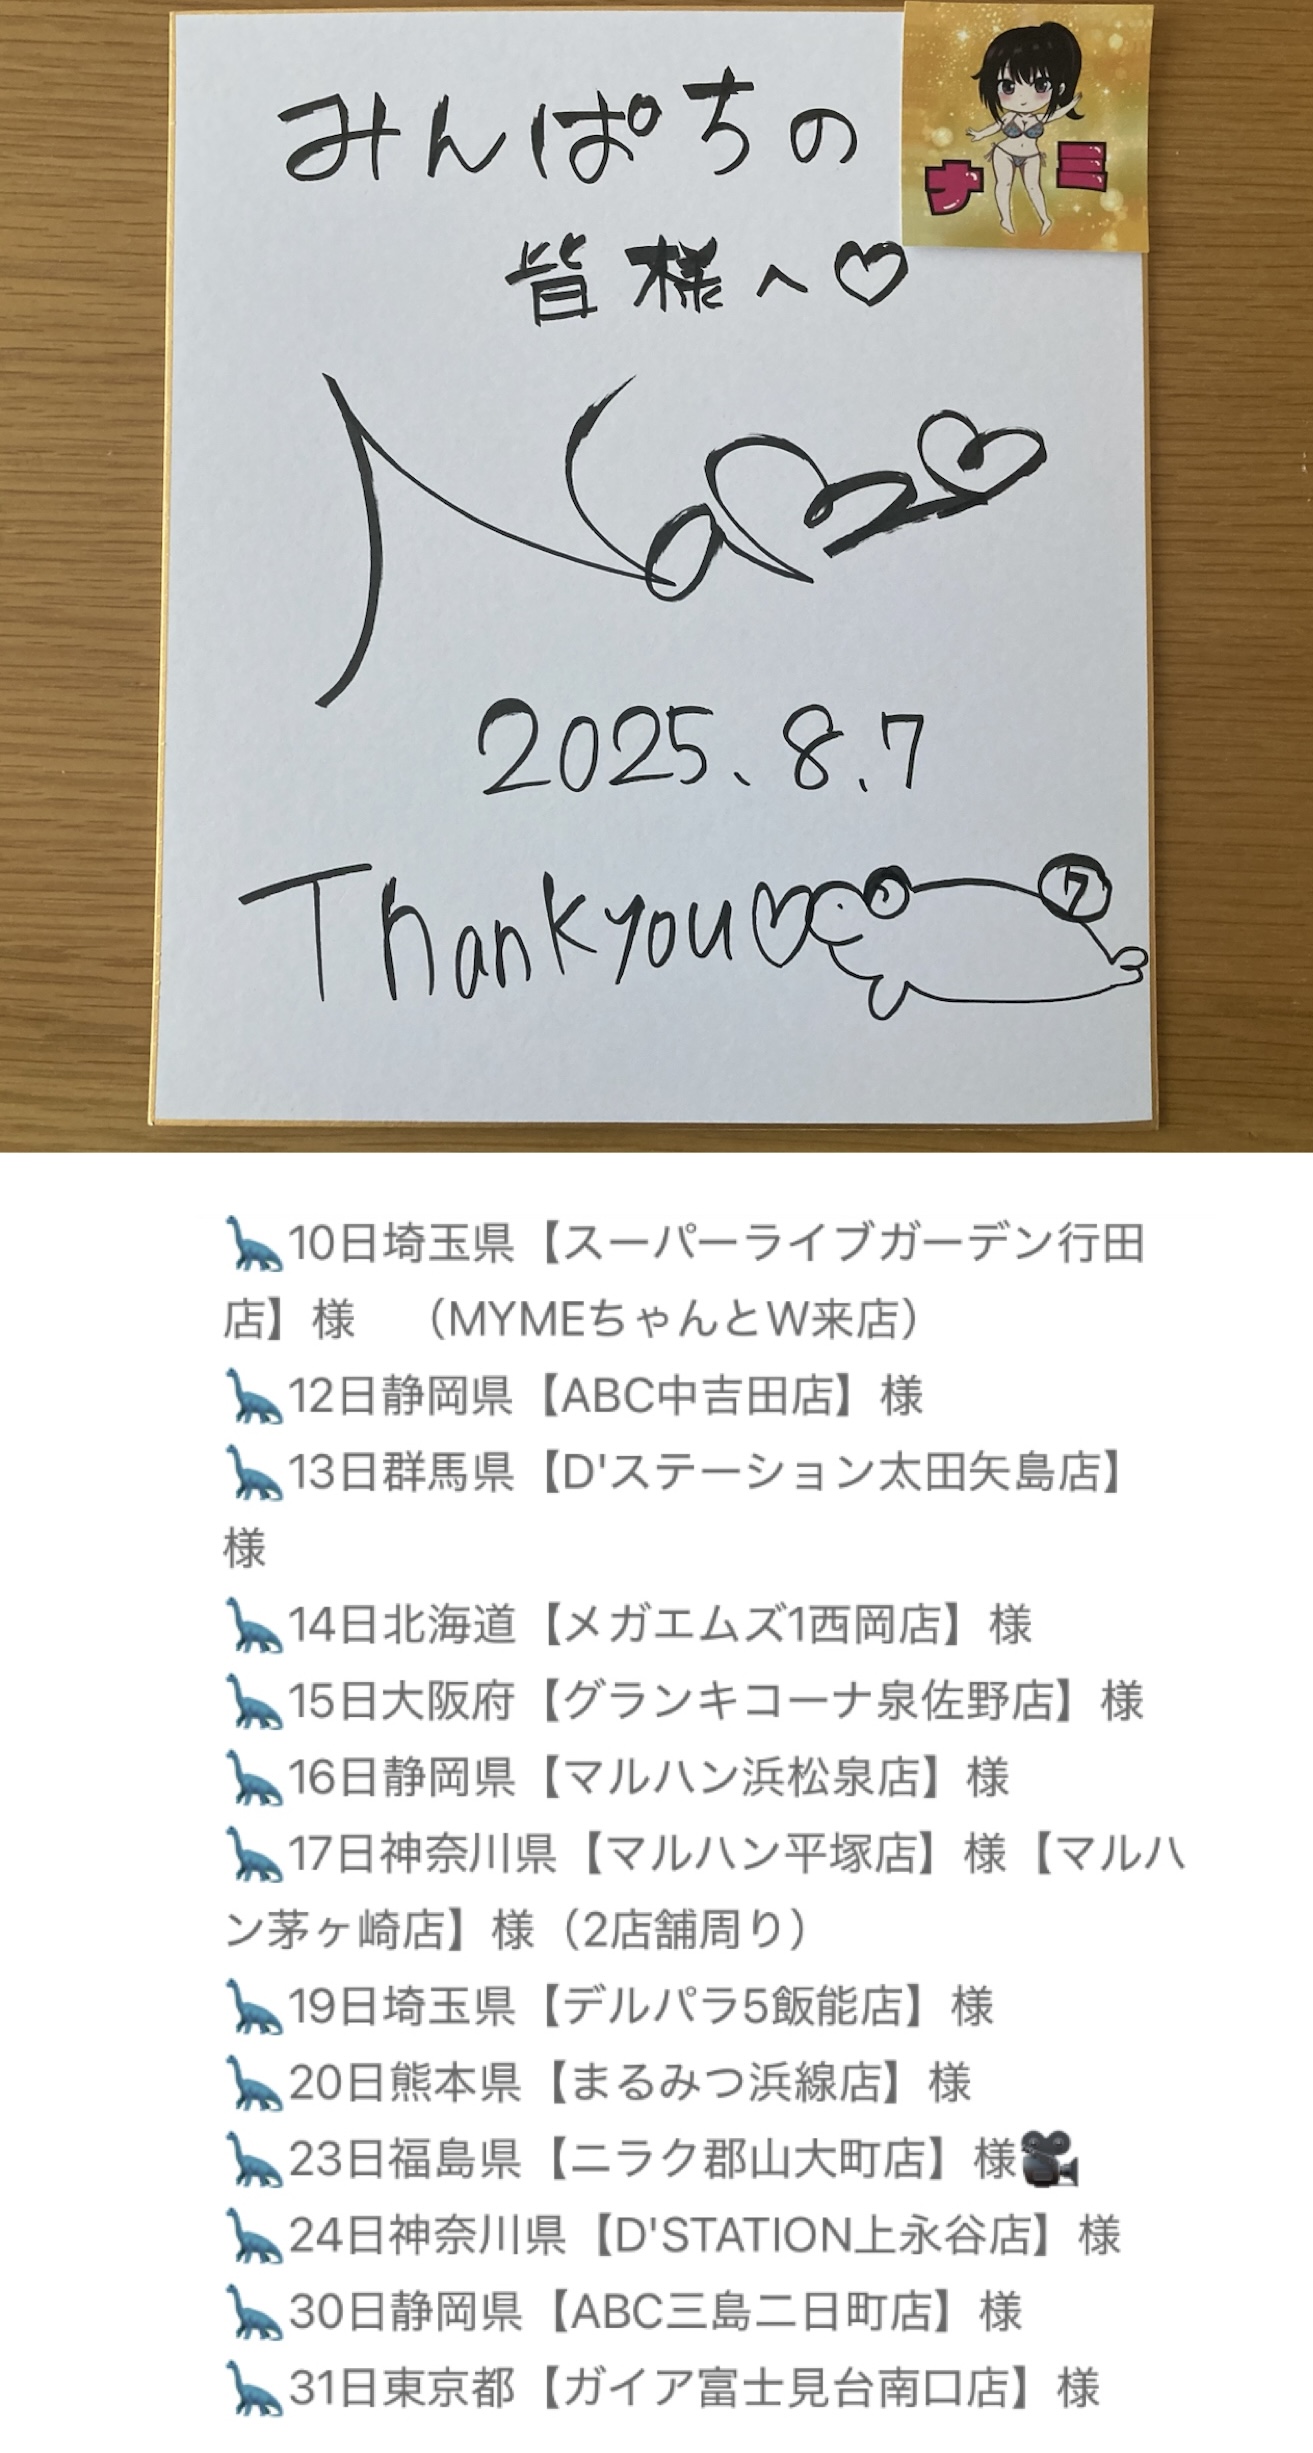 みんぱちの
ナミ
皆様へ♡
Nami♡
2025.8.7
Thank you♡
7
🦕10日埼玉県【スーパーライブガーデン行田
店】様　（MYMEちゃんとW来店）
🦕12日静岡県【ABC中吉田店】様
🦕13日群馬県【D'ステーション太田矢島店】
様
🦕14日北海道【メガエムズ1西岡店】様
🦕15日大阪府【グランキコーナ泉佐野店】様
🦕16日静岡県【マルハン浜松泉店】様
🦕17日神奈川県【マルハン平塚店】様【マルハ
ン茅ヶ崎店】様（2店舗周り）
🦕19日埼玉県【デルパラ5飯能店】様
🦕20日熊本県【まるみつ浜線店】様
🦕23日福島県【ニラク郡山大町店】様🎥
🦕24日神奈川県【D'STATION上永谷店】様
🦕30日静岡県【ABC三島二日町店】様
🦕31日東京都【ガイア富士見台南口店】様